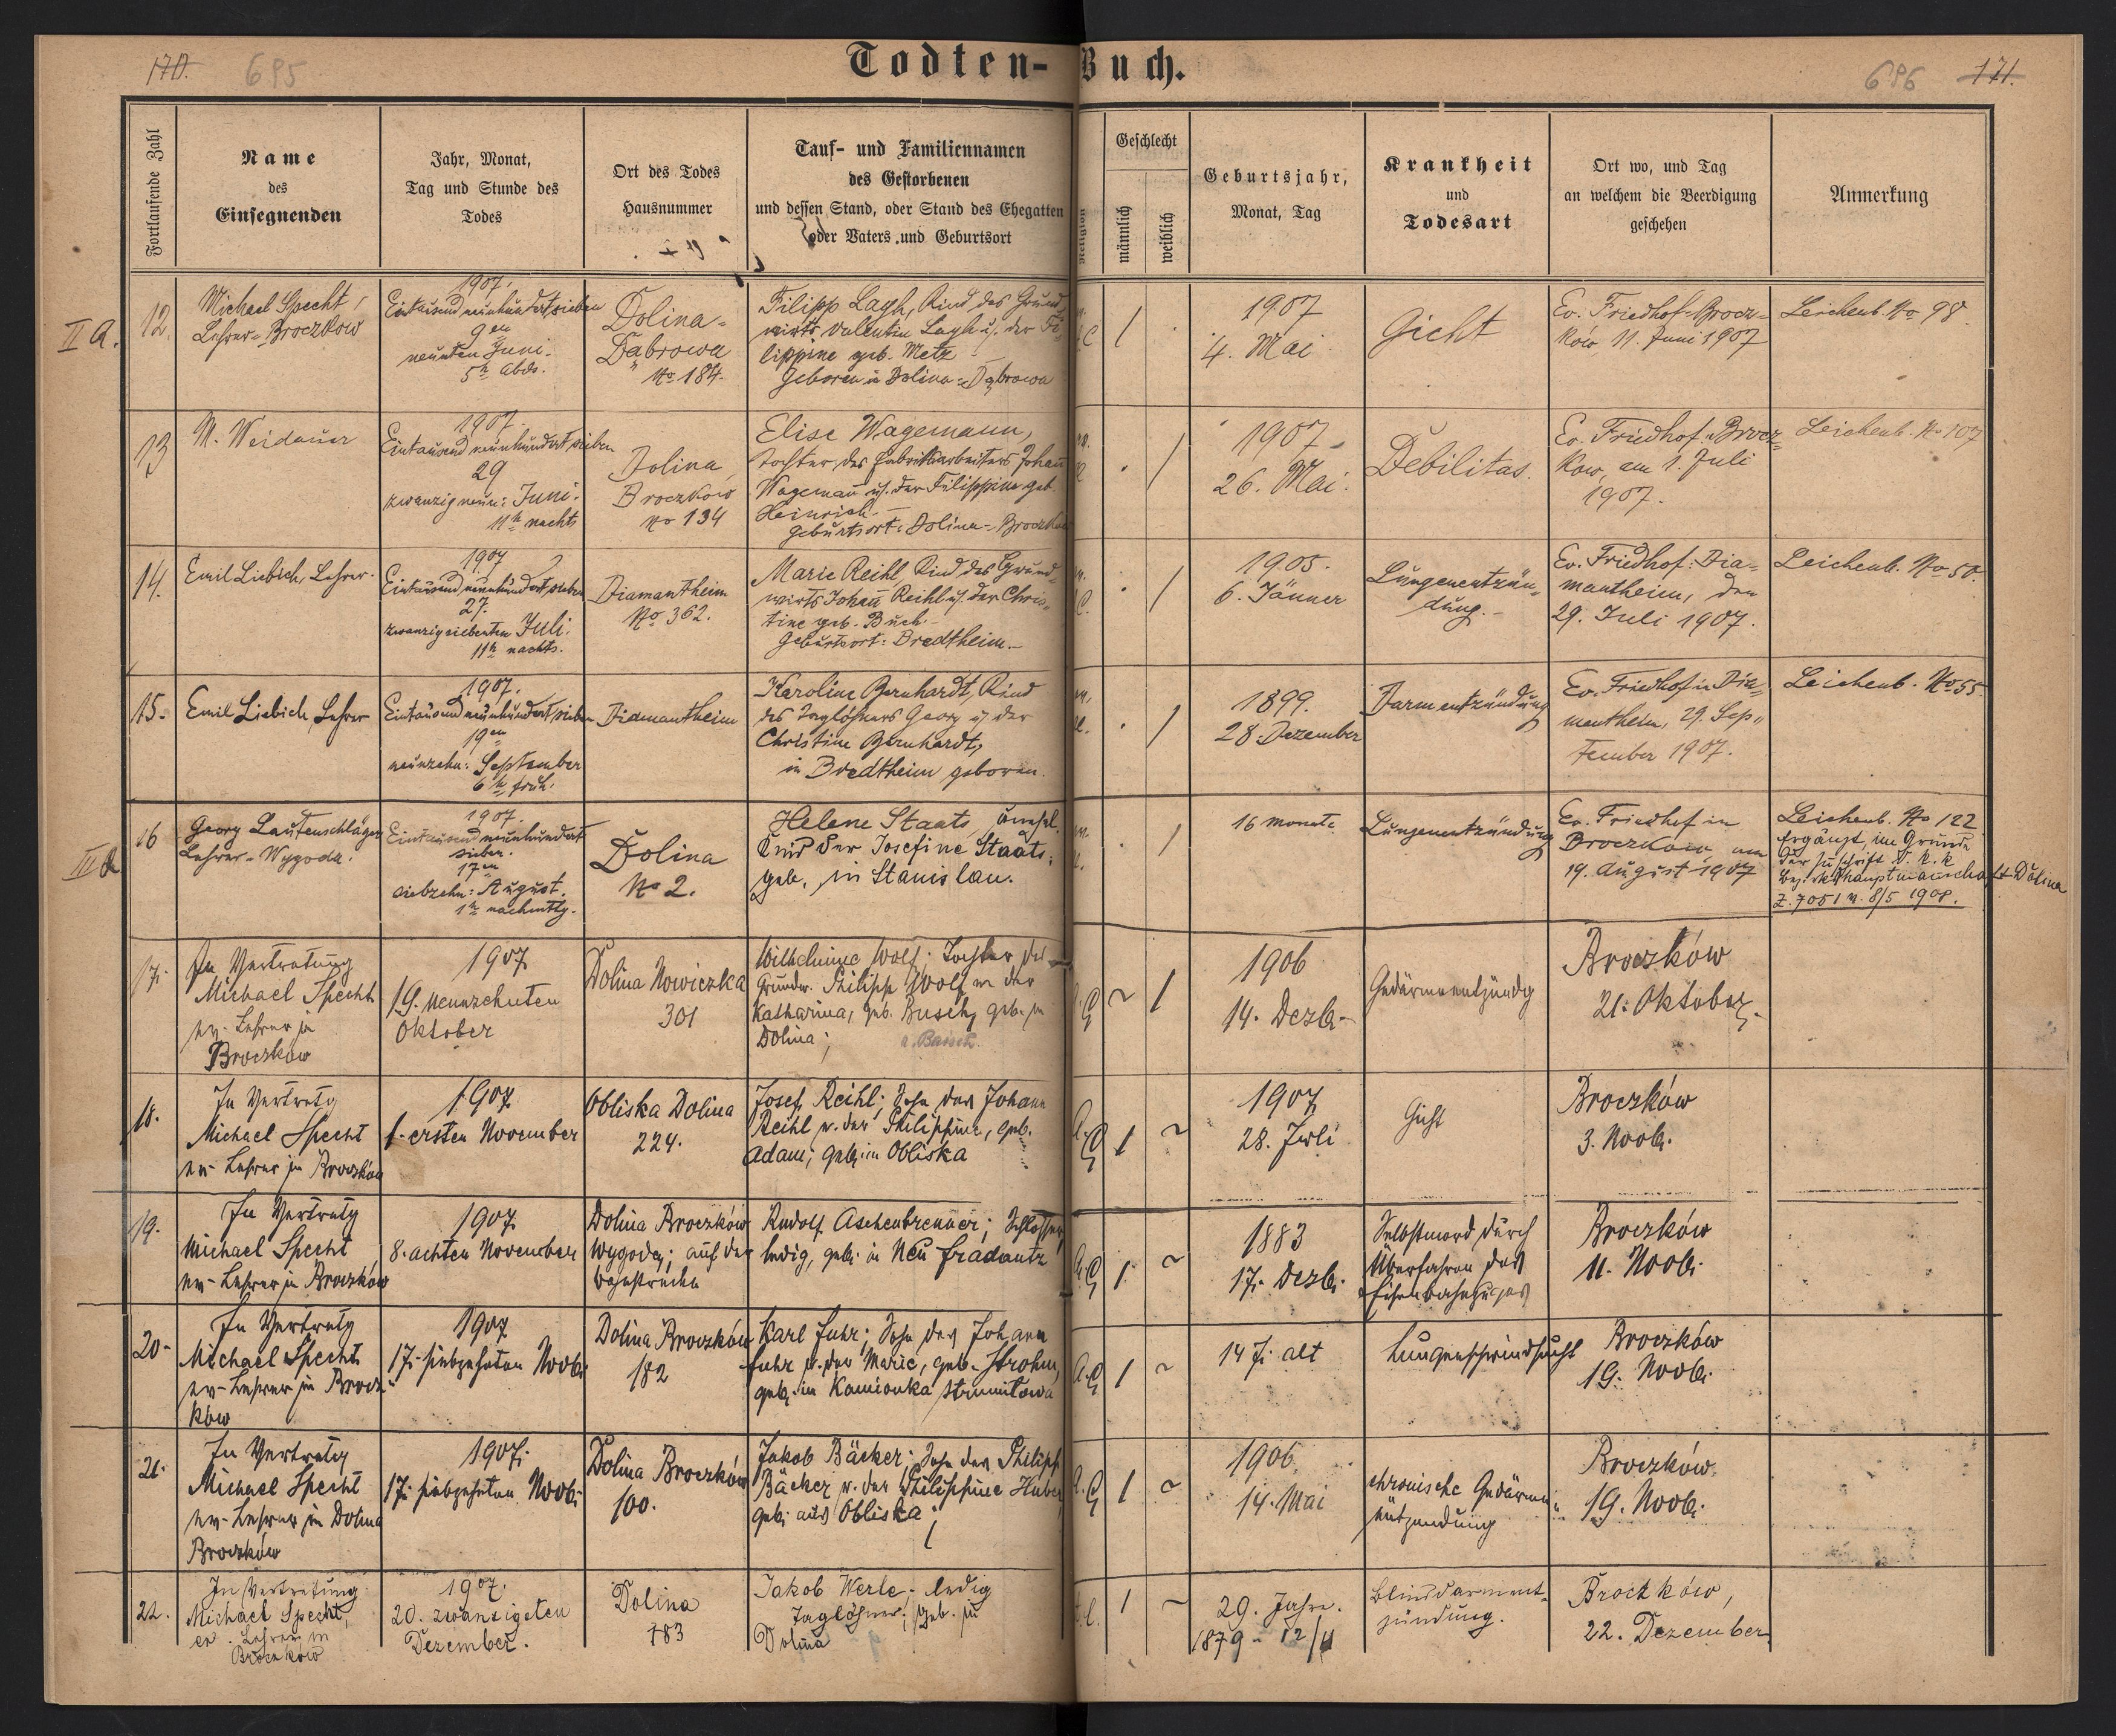 170. 695
Todten-Buch.
696 171.
Fortlaufende Zahl
Name
des
Einsegnenden
Jahr, Monat,
Tag und Stunde des
Todes
Ort des Todes
Hausnummer
Tauf- und Familiennamen
des Gestorbenen
und dessen Stand, oder Stand des Ehegatten
oder Vaters und Geburtsort
Religion
Geschlecht
männlich
weiblich
Geburtsjahr,
Monat, Tag
Krankheit
und
Todesart
Ort wo, und Tag
an welchem die Beerdigung
geschehen
Anmerkung
II a.
12.
Michael Specht,
Lehrer-Broczkow
1907.
Eintausend neunhundert sieben
9en
neunten Juni.
5h Abds.
Dolina-
Dąbrowa
No 184.
Filipp Lagh, Kind des Grund-
wirts Valentin Lagh u. der Fi-
lippine geb. Metz
Geboren in Dolina-Dąbrowa
1
1907
4. Mai
Gicht
Ev. Friedhof-Brocz-
ków 11. Juni 1907
Leichenb. No 98.
13
M. Weidauer
1907
Eintausend neunhundert sieben
29
zwanzig neun: Juni.
11h nachts
Dolina
Broczków
No 134
Elise Wagemann,
Tochter des Fabriksarbeiters Johann
Wagemañ u. der Filippine geb.
Heinrich. —
Geburtsort: Dolina-Broczków
1
1907
26. Mai.
Debilitas.
Ev. Friedhof-Brocz-
kow, am 1. Juli
1907.
Leichenb. No 107
14.
Emil Liebich, Lehrer.
1907
Eintausend neunhundert sieben
27.
zwanzigsiebenten Juli.
11h nachts.
Diamantheim
No 362.
Marie Reihl, Kind des Grund-
wirts Johañ Reihl u. der Chris-
tine geb. Buch-
Geburtsort: Bredtheim.-
1
1905.
6. Jänner
Lungenentzün-
dung.-
Ev. Friedhof: Dia-
mantheim, den
29. Juli 1907.
Leichenb. No 50.
15.
Emil Liebich, Lehrer
1907.
Eintausend neunhundert sieben
19en
neunzehn: September
6h früh.
Diamantheim
Karoline Bernhardt, Kind
des Taglöhners Georg u. der
Christine Bernhardt,
in Bredtheim geboren.
1
1899.
28. Dezember
Darmentzündung
Ev. Friedhof in Dia-
mantheim, 29. Sep-
tember 1907.
Leichenb. No 55.
III a
16
Georg Lautenschläger
Lehrer-Wygoda.
1907.
Eintausend neunhundert
sieben.
17en
siebzehn: August.
1h nachmttg.
Dolina
No 2.
Helene Staats, unehel.
Kind der Josefine Staats;
geb. in Stanislau.
1
16 monate
Lungenentzündung
Ev. Friedhof in
Broczkow am
19. August 1907
Leichenb. No 122
Ergänzt im Grunde
der Zuschrift d. k. k
Bezirkshauptmannschaft Dolina
Z. 7051 v. 8/5 1908.
17.
In Vertretung
Michael Specht
ev- Lehrer in
Broczków
1907
19. neunzehnten
Oktober
Dolina Nowiczka
301
Wilhelmine Wolf; Tochter des
Grundw. Philipp Wolf u. der
Katharina, geb. Busch, geb. in
Dolina;
1
1906
14. Dezb.
Gedärmentzündg
Broczków
21. Oktober
18.
In Vertretg
Michael Specht
ev- Lehrer in Broczków
1907
1. ersten November
Obliska Dolina
224.
Josef Reihl; Sohn des Johann
Reihl u. der Philippine, geb.
Adam; geb. in Obliska
1
1907
28. Juli
Gicht
Broczków
3. Novb.
19.
In Vertretg
Michael Specht
ev- Lehrer in Broczków
1907
8. achten November
Dolina Broczków
Wygoda; auf der
Bahnstrecke
Rudolf Aschenbrenner; Schlosser,
ledig, geb. in Neu Fradautz
1
1883
17. Dezb.
Selbstmord durch
Überfahren des
Eisenbahnzuges
Broczków
11. Novb.
20.
In Vertretg
Michael Specht
ev- Lehrer in Brocz
ków
1907
17. siebzehnten Novb.
Dolina Broczków
182
Karl Fuhr; Sohn des Johann
Fuhr u. der Marie, geb. Strohm,
geb. in Kamionka Strumiłowa
1
14 J. alt
Lungenschwindsucht
Broczków
19. Novb.
21.
In Vertretg
Michael Specht
ev- Lehrer in Dolina
Broczków
1907.
17. siebzehnten Novb.
Dolina Broczków
100.
Jakob Bäcker; Sohn des Philipp
Bäcker u. der Philippine Huber
geb. aus Obliska;
1
1906
14. Mai
chronische Gedärm-
entzündung
Broczków
19. Novb.
22.
In Vertretung
Michael Specht,
ev. Lehrer in
Broczków
1907.
20. zwanzigsten
Dezember.
Dolina
783
Jakob Werle, ledig
Taglöhner; geb. in
Dolina
1
29. Jahre.
1879 - 12/11
Blinddarment-
zündung.
Broczków,
22. Dezember